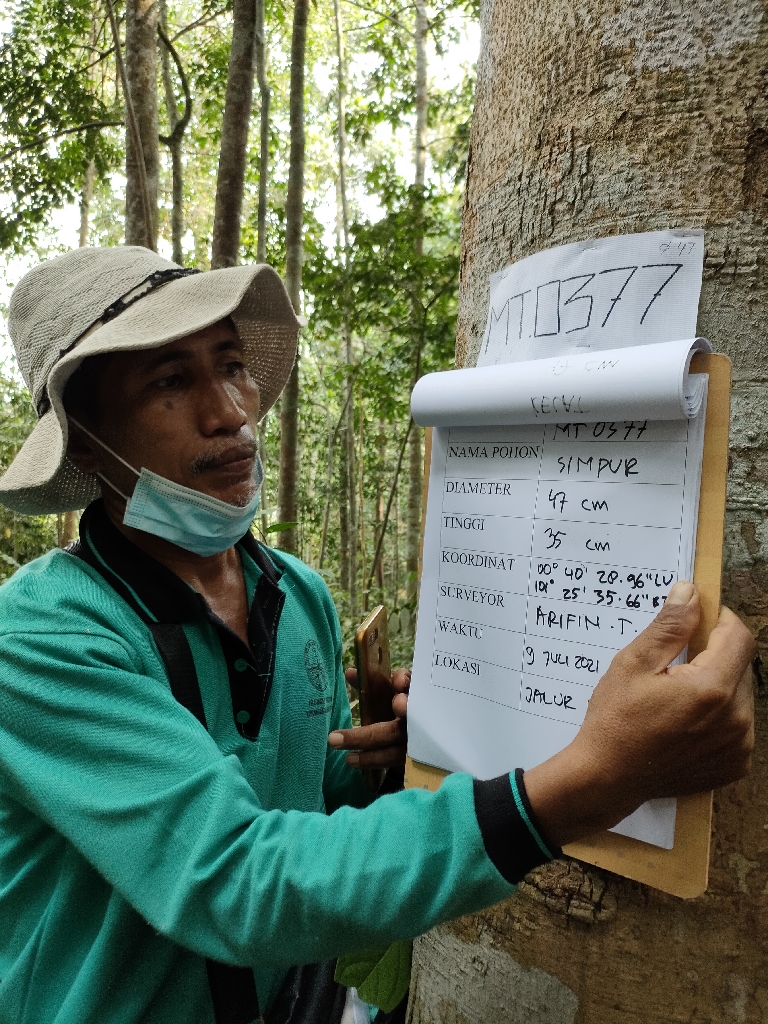 ∅ 47
MT.0377
MT 0377
NAMA POHON SIMPUR
DIAMETER 47 cm
TINGGI 35 cm
KOORDINAT 00° 40' 28.96" LU
101° 25' 35.66"
SURVEYOR ARIFIN.T.
WAKTU 9 JULI 2021
LOKASI JALUR